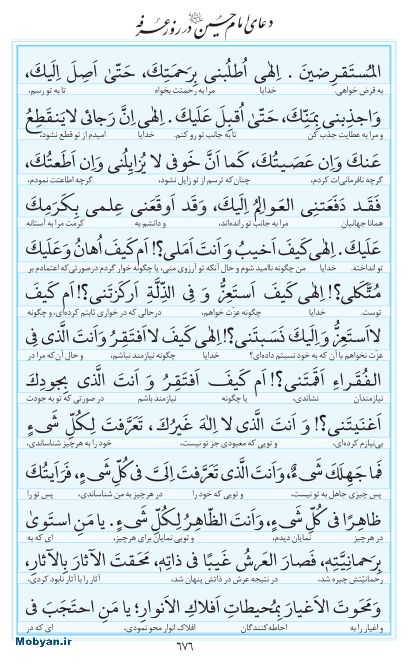 دعای امام حسین در روز عرفه
المُستَقرِضينَ . اِلٰهى اُطلُبنى بِرَحمَتِكَ، حَتّىٰ اَصِلَ اِلَيكَ،
به قرض خواهی. خدایا مرا به رحمتت بخواه تا به تو رسم،
وَاجذِبنى بِمَنِّكَ، حَتّىٰ اُقبِلَ عَلَيكَ. اِلٰهى اِنَّ رَجائى لايَنقَطِعُ
و مرا به عطایت جذب کن تا به جانب تو رو کنم. خدایا امیدم از تو قطع نشود،
عَنكَ وَاِن عَصَيتُكَ، كَما اَنَّ خَوفى لا يُزايِلُنى وَاِن اَطَعتُكَ،
گرچه نافرمانی‌ات کردم، چنان‌که ترسم از تو زایل نشود، گرچه اطاعتت نمودم،
فَقَد دَفَعَتنِى العَوالِمُ اِلَيكَ، وَقَد اَوقَعَنى عِلمى بِكَرَمِكَ
همانا جهانیان مرا به جانب تو رانده‌اند، و دانشم به کرمت مرا به آستانه
عَلَيكَ. اِلٰهى كَيفَ اَخيبُ وَاَنتَ اَمَلى؟! اَم كَيفَ اُهانُ وَعَلَيكَ
تو انداخته. خدایا من چگونه ناامید شوم و حال آنکه تو آرزوی منی، یا چگونه خوار گردم درصورتی که اعتمادم بر
مُتَّكَلى؟! اِلٰهى كَيفَ اَستَعِزُّ وَ فِى الذِّلَّةِ اَركَزتَنى؟! اَم كَيفَ
توست. خدایا چگونه عزت خواهم، درحالی که در خواری ثابتم کرده‌ای، و چگونه
لااَستَعِزُّ وَاِلَيكَ نَسَبتَنى؟! اِلٰهى كَيفَ لااَفتَقِرُ وَاَنتَ الَّذى فِى
عزت نخواهم با آن که به خود نسبتم داده‌ای؟ خدایا چگونه نیازمند نباشم، و حال آن‌که مرا در
الفُقَراءِ اَقَمتَنى؟! اَم كَيفَ اَفتَقِرُ وَ اَنتَ الَّذى بِجودِكَ
نیازمندان نشاندی، یا چگونه نیازمند باشم در صورتی که تو به جودت
اَغنَيتَنى؟! وَ اَنتَ الَّذى لا اِلٰهَ غَيرُكَ، تَعَرَّفتَ لِكُلِّ شَىءٍ
بی‌نیازم کرده‌ای، و تویی که معبودی جز تو نیست، خود را به هرچیز شناساندی،
فَما جَهِلَكَ شَىءٌ، وَاَنتَ الَّذى تَعَرَّفتَ اِلَىَّ فى كُلِّ شَىءٍ، فَرَاَيتُكَ
پس چیزی جاهل به تو نیست، و تویی که خود را در هرچیز به من شناساندی، پس تو را
ظاهِرًا فى كُلِّ شَىءٍ، وَاَنتَ الظّاهِرُ لِكُلِّ شَىءٍ. يا مَنِ استَوىٰ
در هرچیز نمایان دیدم، و تویی نمایان برای هرچیز، ای که به
بِرَحمانِيَّتِهِ، فَصارَ العَرشُ غَيبًا فى ذاتِهِ، مَحَقتَ الآثارَ بِالآثارِ،
رحمانیتش چیره شد، در نتیجه عرش در ذاتش پنهان شد، آثار را با آثار نابود کردی،
وَمَحَوتَ الاَغيارَ بِمُحيطاتِ اَفلاكِ الاَنوارِ؛ يا مَنِ احتَجَبَ فى
و اغیار را به احاطه‌کنندگان افلاک انوار محو نمودی، ای که در
٦٧٦
Mobyan.ir